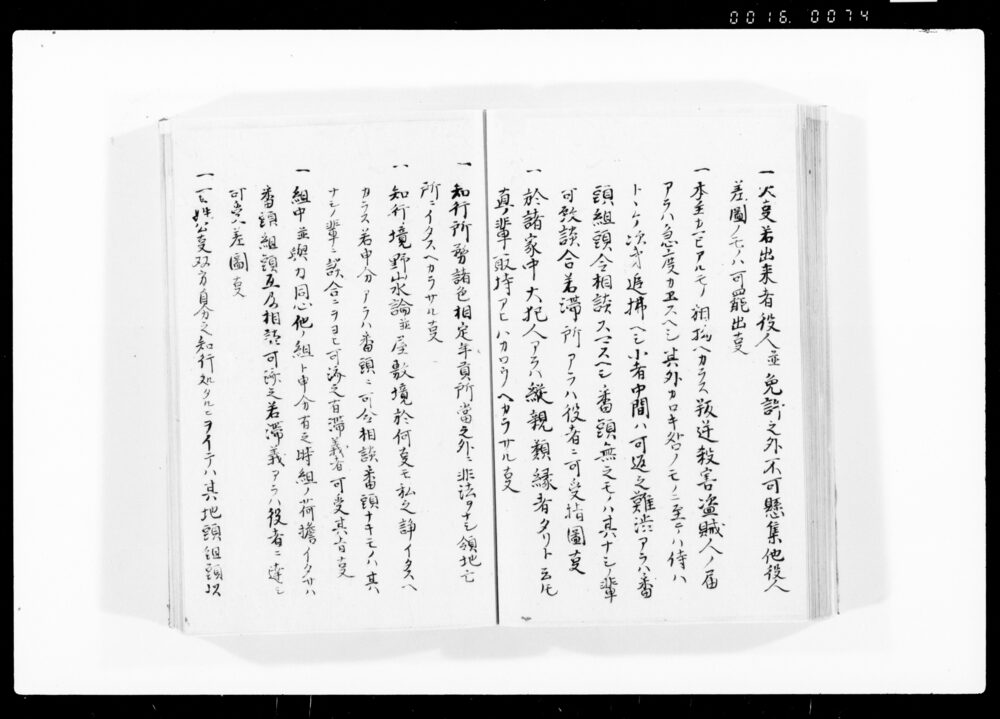 0016. 0074
一 火事若出来者役人並免許之外不可懸集他役人
差圖ノモノハ可罷出事
一 本主カマヒアルモノ相抱ヘカラス叛逆殺害盗賊人ノ届
アラハ急度カエスヘシ其外カロキ咎ノモノニ至テハ侍ハ
トヽケ次第追拂ヘシ小者中間ハ可返之難渋アラハ番
頭組頭令相談スマスヘシ番頭無之モノハ其ナミノ輩
可致談合若滞所アラハ役者ニ可受指圖事
一 於諸家中大犯人アラハ縦親類縁者タリト云トモ
真ノ輩取持アヒハカロウヘカラサル事
一 知行所務諸色相定年貢所當之外ニ非法ヲナシ領地亡
所ニイタスヘカラサル事
一 知行境野山水論並屋敷境於何事モ私之諍イタスヘ
カラス若申分アラハ番頭ニ可令相談番頭ナキモノハ其
ナミノ輩ニ談合ニヲヨヒ可済之有滞義者可受其旨事
一 組中並與力同心他組ト申分有之時組ノ荷擔イタサハ
番頭組頭互及相談可済之若滞義アラハ役者ニ達シ
可受差圖事
一 百姓公事双方自分之知行処タルニヲイテハ其地頭組頭以